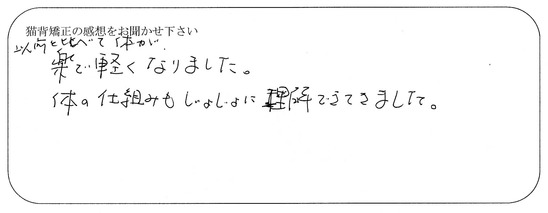 猫背矯正の感想をお聞かせ下さい
以前と比べて体が、
楽で軽くなりました。
体の仕組みもじょじょに理解できてきました。